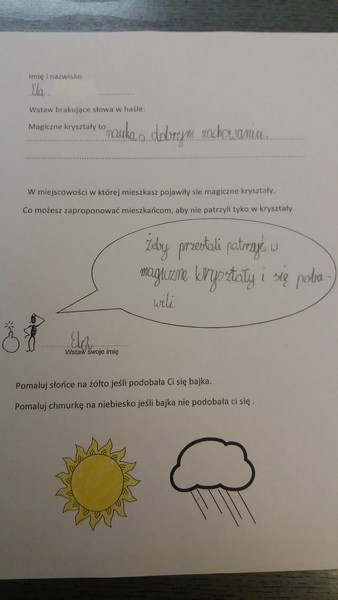 Imię i nazwisko
Ela
Wstaw brakujące słowa w haśle:
Magiczne kryształy to nauka o dobrym zachowaniu.
W miejscowości w której mieszkasz pojawiły sie magiczne kryształy.
Co możesz zaproponować mieszkańcom, aby nie patrzyli tyko w kryształy.
żeby przestali patrzyć w
magiczne kryształy i się poba-
wili
Ela
Wstaw swoje imię
Pomaluj słońce na żółto jeśli podobała Ci się bajka.
Pomaluj chmurkę na niebiesko jeśli bajka nie podobała ci się .